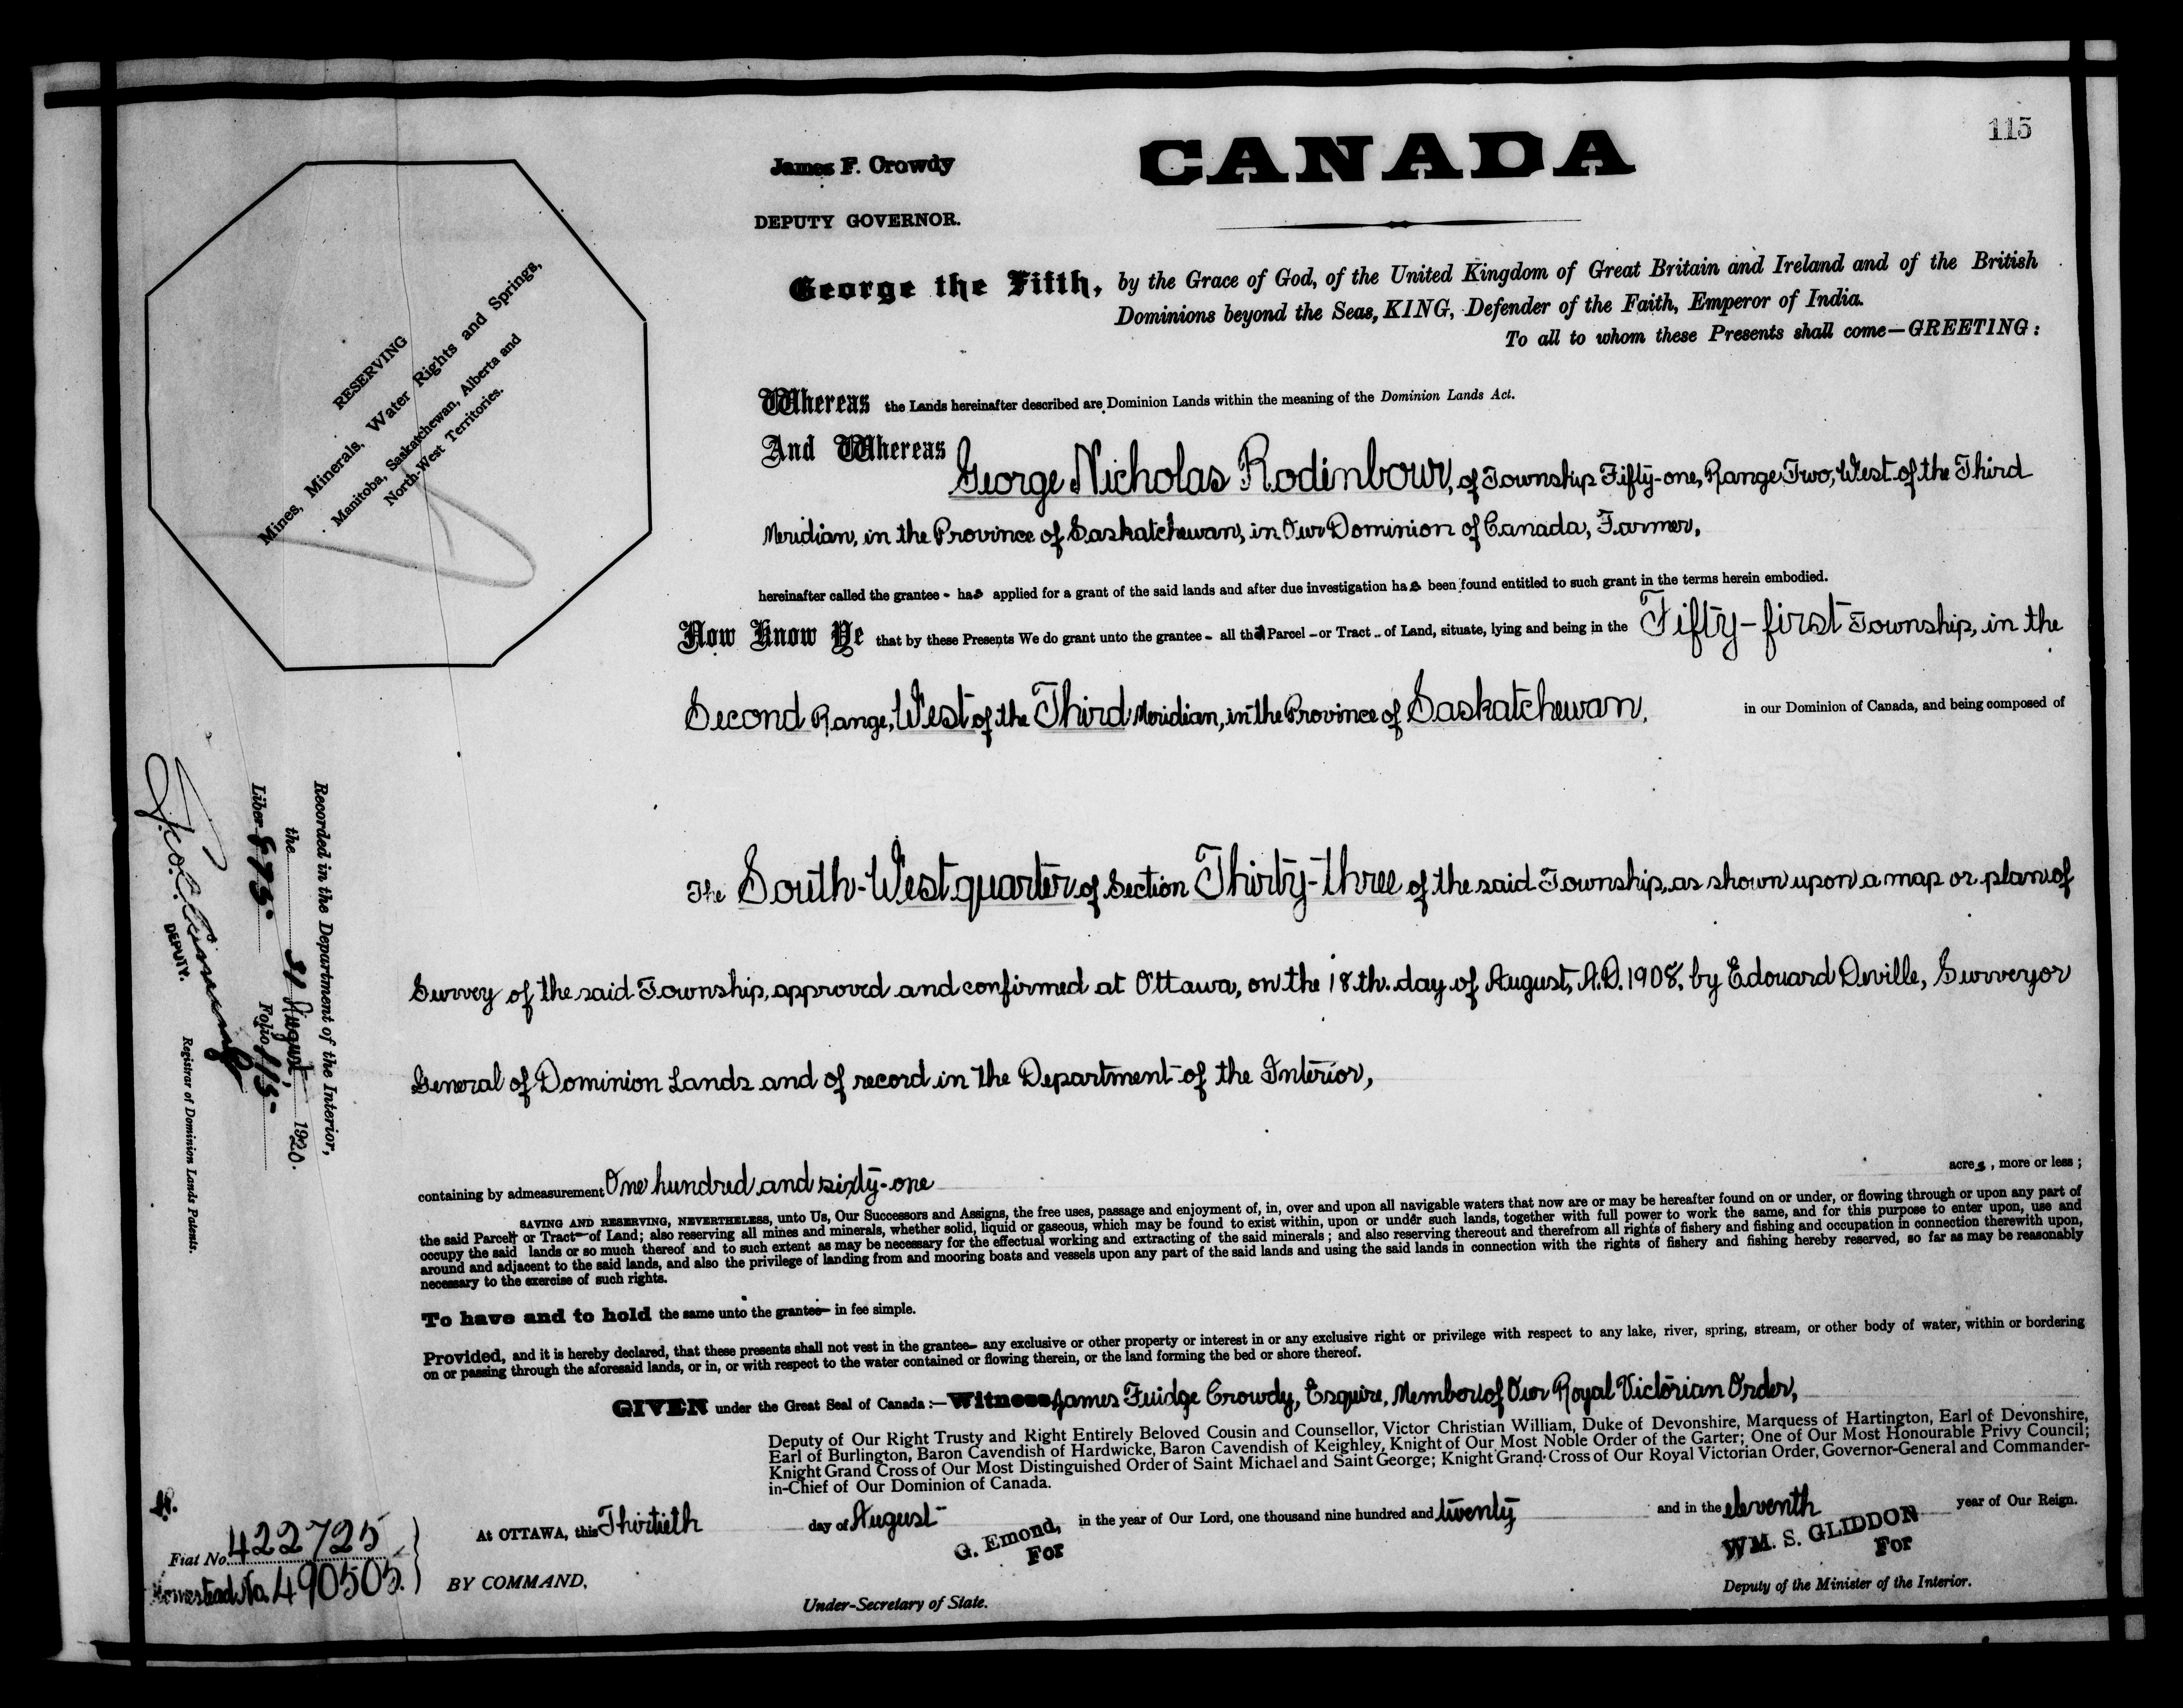 115
James F. Crowdy
CANADA
DEPUTY GOVERNOR.
George the Fifth, by the Grace of God, of the United Kingdom of Great Britain and Ireland and of the British
Dominions beyond the Seas, KING, Defender of the Faith, Emperor of India.
To all to whom these Presents shall come—GREETING:
RESERVING
Mines, Minerals, Water Rights and Springs,
Manitoba, Saskatchewan, Alberta and
North-West Territories.
Whereas the Lands hereinafter described are Dominion Lands within the meaning of the Dominion Lands Act.
And Whereas George Nicholas Rodinbour, of Township Fifty-one, Range Two, West of the Third
Meridian, in the Province of Saskatchewan, in Our Dominion of Canada, Farmer,
hereinafter called the grantee - has applied for a grant of the said lands and after due investigation has been found entitled to such grant in the terms herein embodied.
Now Know Ye that by these Presents We do grant unto the grantee - all that Parcel - or Tract - of Land, situate, lying and being in the Fifty-first Township, in the
Second Range, West of the Third Meridian, in the Province of Saskatchewan, in our Dominion of Canada, and being composed of
The South-West quarter of Section Thirty-three of the said Township, as shown upon a map or plan of
Survey of the said Township, approved and confirmed at Ottawa, on the 18th. day of August, A.D. 1908, by Edouard Deville, Surveyor
General of Dominion Lands and of record in the Department of the Interior,
Recorded in the Department of the Interior,
the 31 August, 1920.
Liber 875. Folio 115-
DEPUTY.
Registrar of Dominion Lands Patents.
containing by admeasurement One hundred and sixty-one acres, more or less;
SAVING AND RESERVING, NEVERTHELESS, unto Us, Our Successors and Assigns, the free uses, passage and enjoyment of, in, over and upon all navigable waters that now are or may be hereafter found on or under, or flowing through or upon any part of
the said Parcel or Tract of Land; also reserving all mines and minerals, whether solid, liquid or gaseous, which may be found to exist within, upon or under such lands, together with full power to work the same, and for this purpose to enter upon, use and
occupy the said lands or so much thereof and to such extent as may be necessary for the effectual working and extracting of the said minerals; and also reserving thereout and therefrom all rights of fishery and fishing and occupation in connection therewith upon,
around and adjacent to the said lands, and also the privilege of landing from and mooring boats and vessels upon any part of the said lands and using the said lands in connection with the rights of fishery and fishing hereby reserved, so far as may be reasonably
necessary to the exercise of such rights.
To have and to hold the same unto the grantee- in fee simple.
Provided, and it is hereby declared, that these presents shall not vest in the grantee- any exclusive or other property or interest in or any exclusive right or privilege with respect to any lake, river, spring, stream, or other body of water, within or bordering
on or passing through the aforesaid lands, or in, or with respect to the water contained or flowing therein, or the land forming the bed or shore thereof.
GIVEN under the Great Seal of Canada:—Witness James Fuidge Crowdy, Esquire, Member of Our Royal Victorian Order,
Deputy of Our Right Trusty and Right Entirely Beloved Cousin and Counsellor, Victor Christian William, Duke of Devonshire, Marquess of Hartington, Earl of Devonshire,
Earl of Burlington, Baron Cavendish of Hardwicke, Baron Cavendish of Keighley, Knight of Our Most Noble Order of the Garter; One of Our Most Honourable Privy Council;
Knight Grand Cross of Our Most Distinguished Order of Saint Michael and Saint George; Knight Grand Cross of Our Royal Victorian Order, Governor-General and Commander-
in-Chief of Our Dominion of Canada.
At OTTAWA, this Thirtieth day of August in the year of Our Lord, one thousand nine hundred and twenty and in the eleventh year of Our Reign.
G. Emond,
For
WM. S. GLIDDON
For
Fiat No. 422725
Homestead No. 490505.
BY COMMAND,
Under-Secretary of State.
Deputy of the Minister of the Interior.